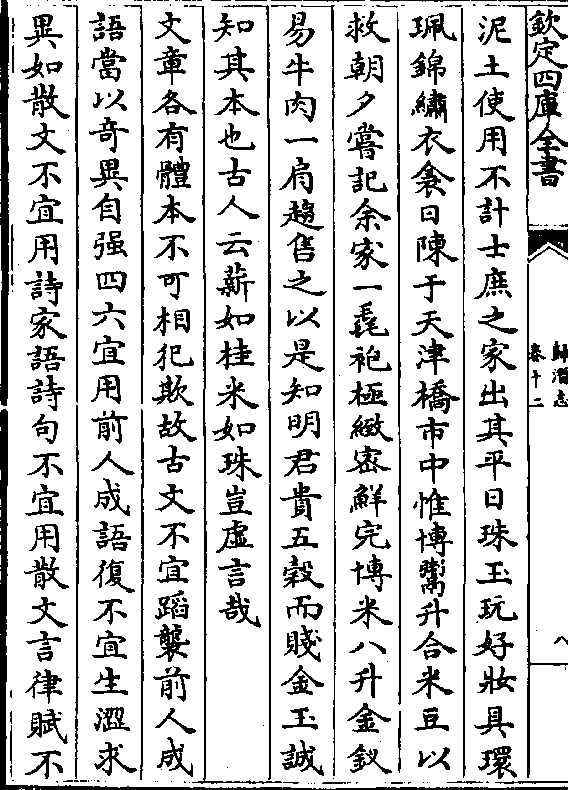 欽定四庫全書
歸潛志
卷十二
八
泥土使用不計士庶之家出其平日珠玉玩好妝具環
珮錦繡衣衾日陳于天津橋市中惟博鬻升合米豆以
救朝夕嘗記余家一毳袍極緻密鮮完博米八升金釵
易牛肉一肩趨售之以是知明君貴五穀而賤金玉誠
知其本也古人云薪如桂米如珠豈虛言哉
文章各有體本不可相犯欺故古文不宜蹈襲前人成
語當以奇異自强四六宜用前人成語復不宜生澀求
異如散文不宜用詩家語詩句不宜用散文言律賦不